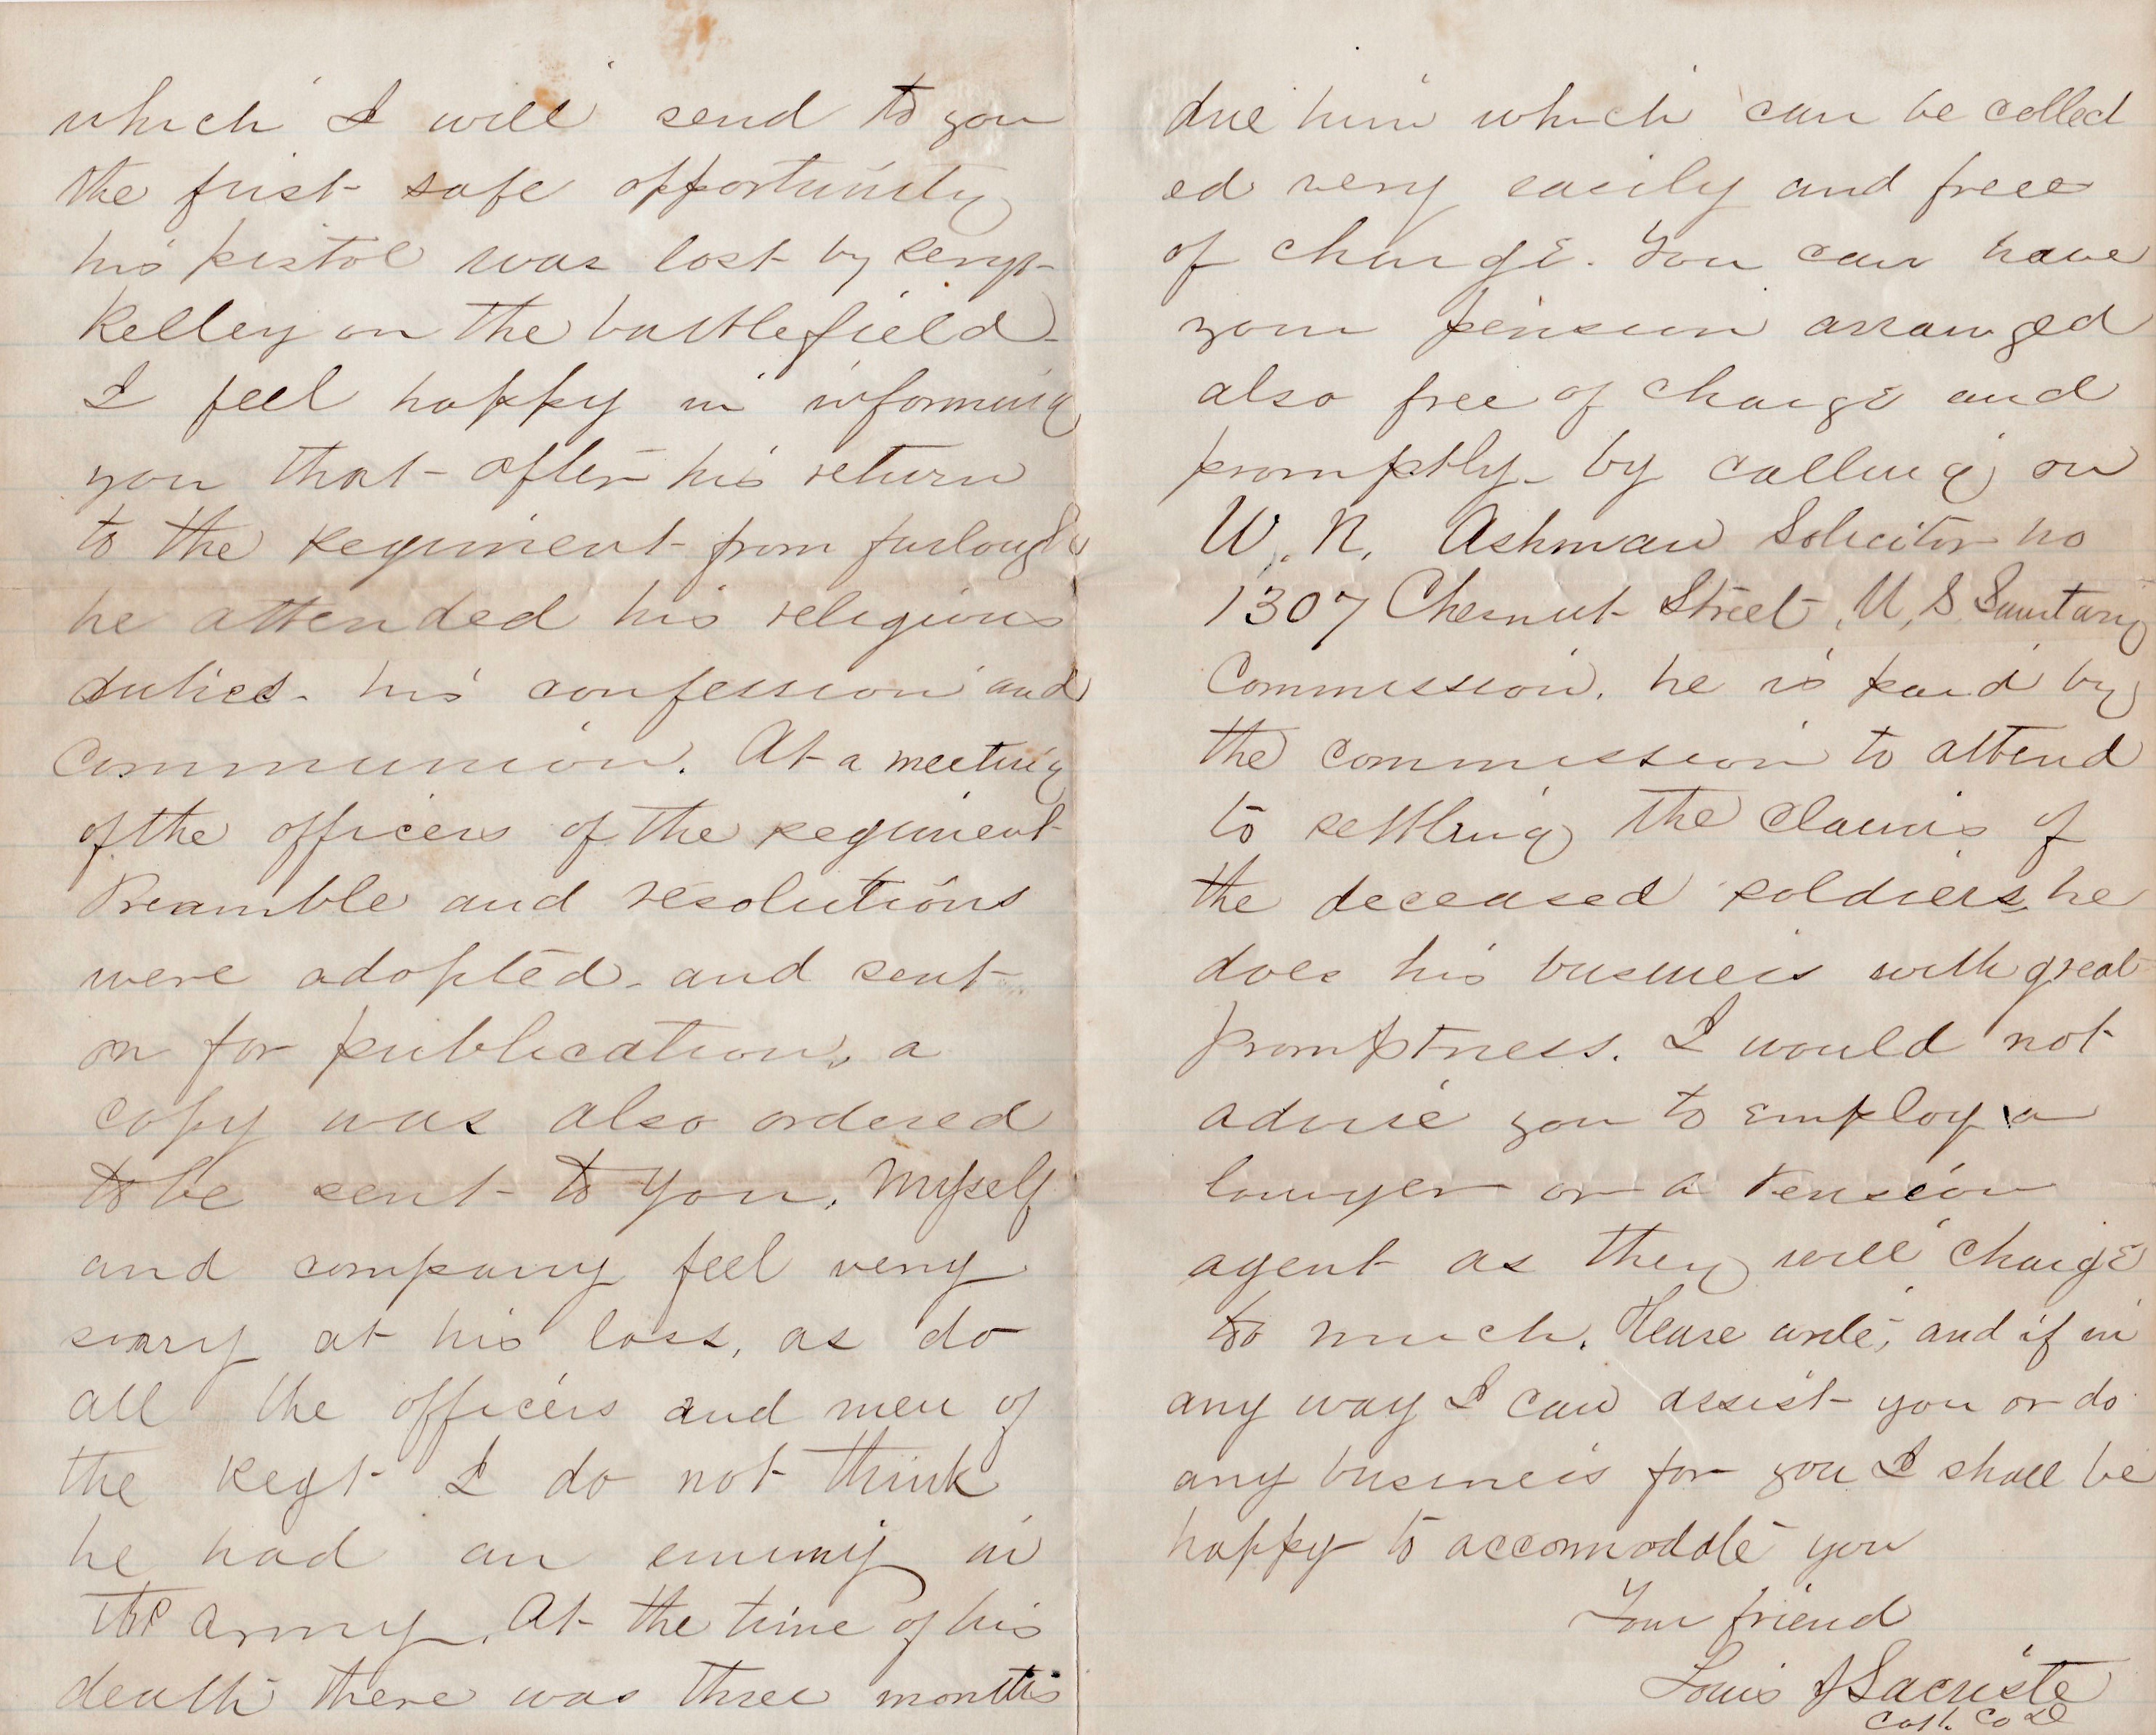 which I will send to you
the first safe opportunity
his pistol was lost by Sergt
Kelley on the battlefield -
I feel happy in informing
you that after his return
to the Regiment from furlough
he attended his religious
duties - his confession and
Communion. At a meeting
of the officers of the regiment
Preamble and resolutions
were adopted - and sent
on for publication, a
copy was also ordered
to be sent to you. Myself
and company feel very
sorry at his loss, as do
all the officers and men of
the Regt I do not think
he had an enemy in
the army. At the time of his
death there was three months
due him which can be collect
ed very easily and free
of charge. You can have
your pension arranged
also free of charge and
promptly - by calling on
W. N. Ashman Solicitor no
1307 Chesnut Street, U, S. Sanitary
Commission. he is paid by
the commission to attend
to settling the claims of
the deceased soldiers, he
does his business with great
promptness. I would not
advise you to employ a
lawyer or a Pension
agent as they will charge
to much. Please write, and if in
any way I can assist you or do
any business for you I shall be
happy to accommodate you
Your friend
Louis J Sacriste
Capt. Co D